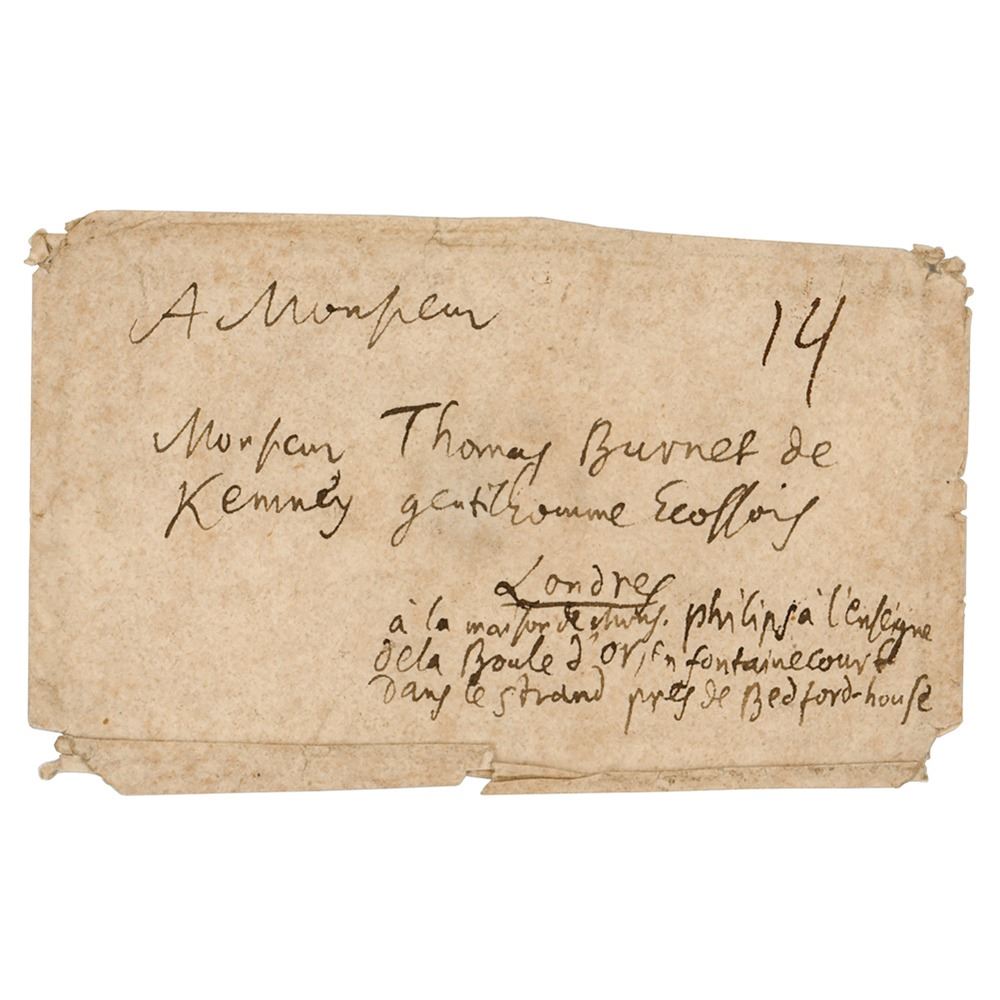 A Monsieur
14
Monsieur Thomas Burnet de
Kemney gentilhomme Ecossois
Londres
à la maison de philips à l'enseigne
de la Boule d'or, en fontainecourt
Dans le strand prés de Bedford-house